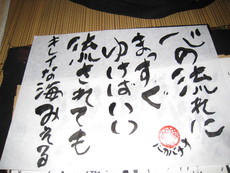 心の流れに
まっすぐ
ゆけばいい
流されても
キレイな海みえる